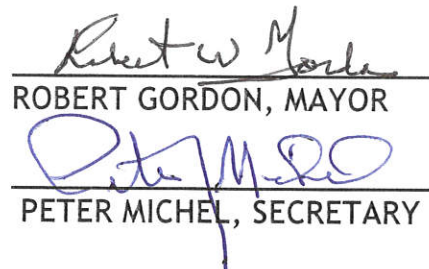 Robert W Gordon
ROBERT GORDON, MAYOR
Peter Michel
PETER MICHEL, SECRETARY